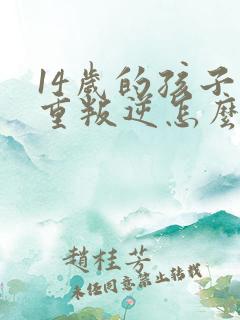 14歲的孩子
重叛逆怎麽
趙桂芳
未經同意禁止轉載